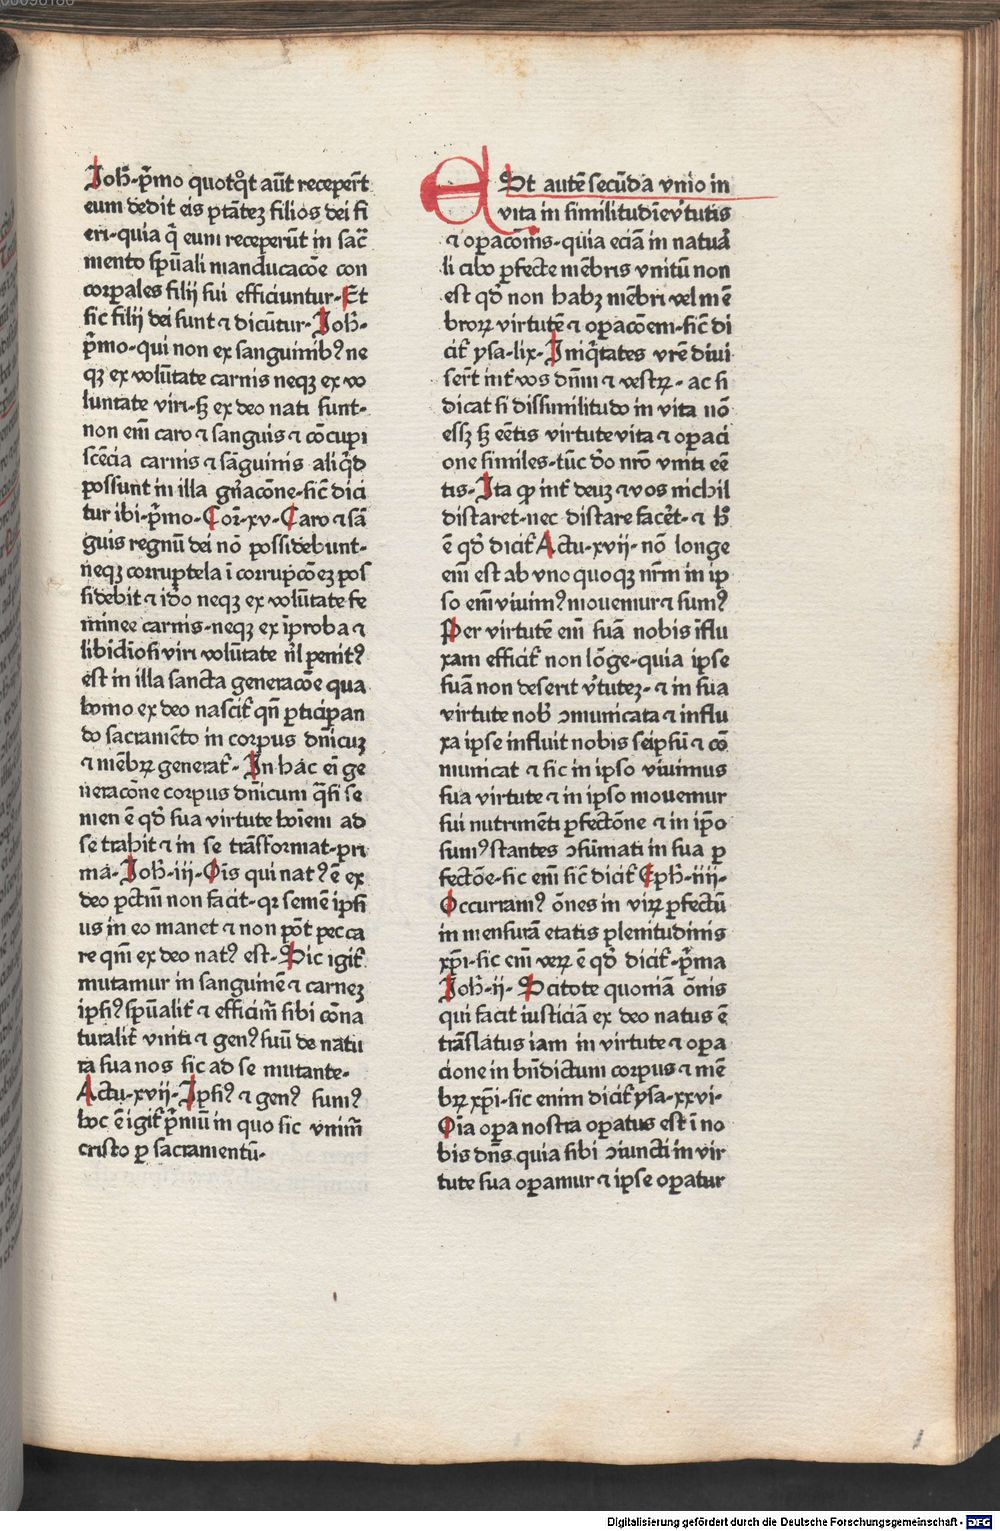 Joh̄·p̄mo quotqͦt aūt recepeꝛ̄t
eum dedit eis ptātez filios dei fi
eri·quia q̄ eum receperūt in sac̄
mento sp̄uali manducacōe con
corpales filij sui efficiuntur·Et
sic filij dei sunt ⁊ dicūtur·Joh̄·
p̄mo·qui non ex sanguinibꝰ ne
qꝫ ex volūtate carnis neqꝫ ex vo
luntate viri·sꝫ ex deo nati sunt·
non em̄ caro ⁊ sanguis ⁊ cōcupi
scēcia carnis ⁊ sāguinis aliq̄d
possunt in illa gn̄acōne·sic̄ dici
tur ibi·p̄mo·Cor̄·xv·Caro ⁊ sā
guis regnū dei nō possidebunt·
neqꝫ corruptela ī corrupcōeꝫ pos
sidebit ⁊ iđo neqꝫ ex volūtate fe
minee carnis·neqꝫ ex īproba ⁊
libidiosi viri volūtate nͥl penitꝰ
est in illa sancta generacōe qua
homo ex deo nascit̄ qn̄ ꝑticipan
do sacramēto in corpus dnīcuꝫ
⁊ mēbꝝ generat̄·In hāc ei ge
neracōne corpus dnīcum q̄si se
men ē qđ sua virtute hoīem ad
se trahit ⁊ in se trāsformat·pri
ma·Joh̄·iii·Oīs qui natꝰ ē ex
deo pctm̄ non facit·qꝛ semē ipsi
us in eo manet ⁊ non pōt pecca
re qm̄ ex deo natꝰ est·Sic igit̄
mutamur in sanguinē ⁊ carneꝫ
ipsiꝰ sp̄ualit̄ ⁊ efficim̄ sibi cōna
turalit̄ vniti ⁊ genꝰ suū de natu
ra sua nos sic ad se mutante·
Actu·xvii·Ipsiꝰ ⁊ genꝰ sumꝰ
hoc ē igit̄ p̄miū in quo sic vnim̄
cristo ꝑ sacramentū·
ESt autē secūda vnio in
vita in similitudīe v̄tutis
⁊ opacōnis·quia eciā in natuā
li cibo ꝑfecte mēbris vnitū non
est qđ non habꝫ mēbri vel mē
broꝝ virtutē ⁊ opacōem·sic̄ di
cit̄ ysa·lix·Iniq̄tates vrē divi
ser̄t int̄ vos dnm̄ ⁊ vestꝝ·ac si
dicat si dissimilitudo in vita nō
essꝫ sꝫ eētis virtute vita ⁊ opaci
one similes·tūc đo nrō vniti eē
tis·Ita ꝙ int̄ deuꝫ ⁊ vos nichil
distaret·nec distare facēt·⁊ h̄
ē qđ dicit̄ Actu·xvii·nō longe
em̄ est ab vno quoqꝫ nrm̄ in ip
so em̄ viuimꝰ mouemur ⁊ sumꝰ
Per virtutē em̄ suā nobis īflu
xam efficit̄ non lōge·quia ipse
suā non deserit v̄tuteꝫ·⁊ in sua
virtute nob̄ ꝯmunicata ⁊ influ
xa ipse influit nobis seipsū ⁊ cō
municat ⁊ sic in ipso viuimus
sua virtute ⁊ in ipso mouemur
sui nutrimēti ꝑfectōne ⁊ in ip̄o
sumꝰ stantes ꝯsūmati in sua ꝑ
fectōe·sic em̄ sic̄ dicit̄ Eph̄·iiii·
Occurramꝰ ōnes in viꝝ ꝑfectū
in mensurā etatis plenitudinis
xp̄i·sic em̄ veꝝ ē qđ dicit̄·p̄ma
Joh̄·ii·Scitote quoniā ōnis
qui facit iusticiā ex deo natus ē
trāslatus iam in virtute ⁊ opa
cione in bn̄dictum corpus ⁊ mē
bꝝ xp̄i·sic enim dicit̄ ysa·xxvi·
Oīa oꝑa nostra oꝑatus est ī no
bis dn̄s quia sibi ꝯiuncti in vir
tute sua oꝑamur ⁊ ipse oꝑatur
1
Digitalisierung gefördert durch die Deutsche Forschungsgemeinschaft - DFG